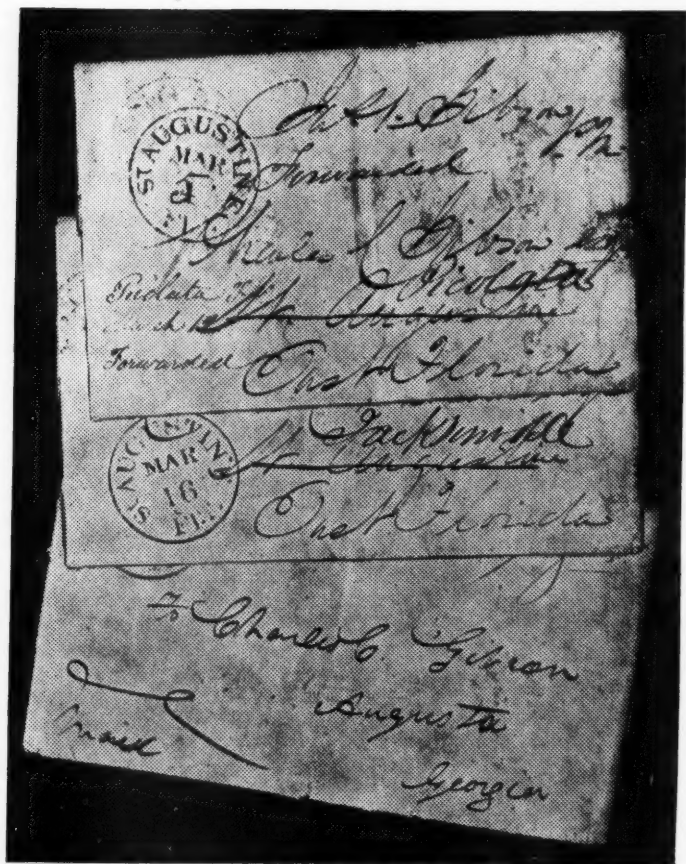 ST AUGUSTINE
MAR
FL.
Gibson
Forwarded
Charles Gibson
Picolata
Picolata
March St Augustine
Forwarded East Florida
ST AUGUSTINE
MAR
16
FL.
Jacksonville
St Augustine
East Florida
To Charles C. Gibson
Augusta
Georgia